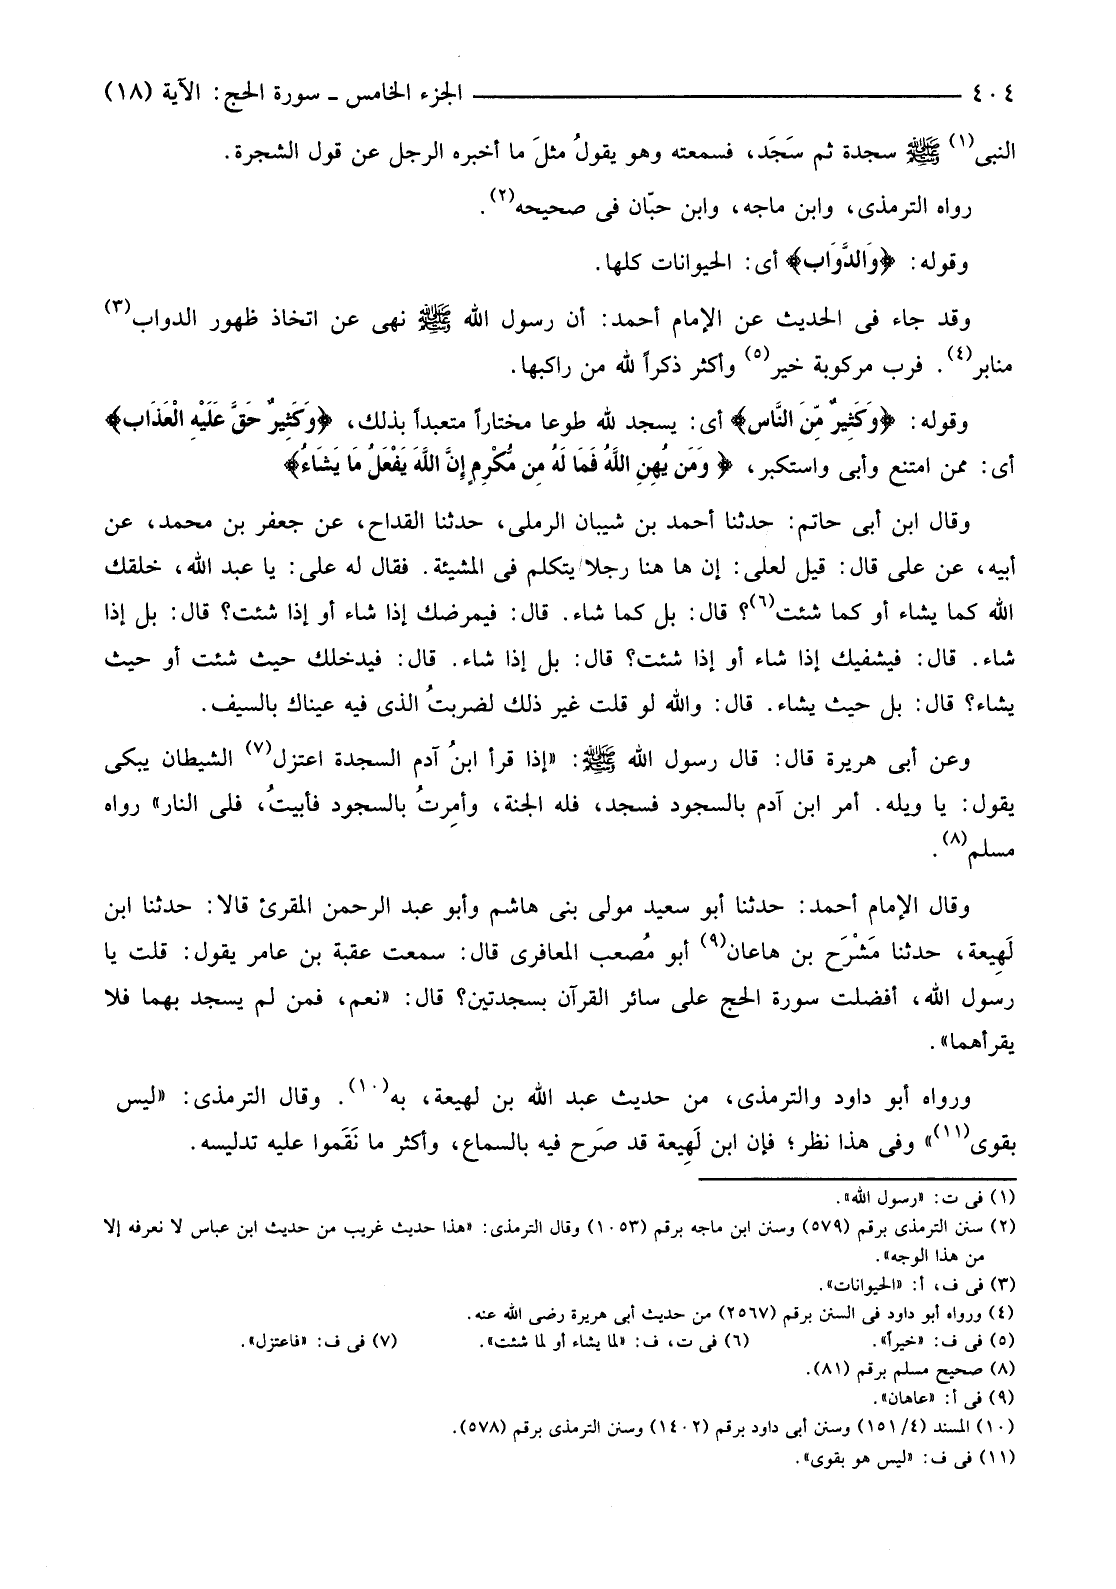 ٤٠٤ ــــــــــــــــــــ الجزء الخامس ـ سورة الحج: الآية (١٨)
النبى(١) ﷺ سجدة ثم سَجَد، فسمعته وهو يقولُ مثلَ ما أخبره الرجل عن قول الشجرة.
رواه الترمذى، وابن ماجه، وابن حبّان فى صحيحه(٢).
وقوله: ﴿وَالدَّوَاب﴾ أى: الحيوانات كلها.
وقد جاء فى الحديث عن الإمام أحمد: أن رسول الله ﷺ نهى عن اتخاذ ظهور الدواب(٣)
منابر(٤). فرب مركوبة خير(٥) وأكثر ذكراً لله من راكبها.
وقوله: ﴿وَكَثِيرٌ مِّنَ النَّاس﴾ أى: يسجد لله طوعا مختاراً متعبداً بذلك، ﴿وَكَثِيرٌ حَقَّ عَلَيْهِ الْعَذَاب﴾
أى: ممن امتنع وأبى واستكبر، ﴿ وَمَن يُهِنِ اللَّهُ فَمَا لَهُ مِن مُّكْرِمٍ إِنَّ اللَّهَ يَفْعَلُ مَا يَشَاءُ﴾
وقال ابن أبى حاتم: حدثنا أحمد بن شيبان الرملى، حدثنا القداح، عن جعفر بن محمد، عن
أبيه، عن على قال: قيل لعلى: إن ها هنا رجلا يتكلم فى المشيئة. فقال له على: يا عبد الله، خلقك
الله كما يشاء أو كما شئت(٦)؟ قال: بل كما شاء. قال: فيمرضك إذا شاء أو إذا شئت؟ قال: بل إذا
شاء. قال: فيشفيك إذا شاء أو إذا شئت؟ قال: بل إذا شاء. قال: فيدخلك حيث شئت أو حيث
يشاء؟ قال: بل حيث يشاء. قال: والله لو قلت غير ذلك لضربتُ الذى فيه عيناك بالسيف.
وعن أبى هريرة قال: قال رسول الله ﷺ: «إذا قرأ ابنُ آدم السجدة اعتزل(٧) الشيطان يبكى
يقول: يا ويله. أمر ابن آدم بالسجود فسجد، فله الجنة، وأمِرتُ بالسجود فأبيتُ، فلى النار» رواه
مسلم(٨).
وقال الإمام أحمد: حدثنا أبو سعيد مولى بنى هاشم وأبو عبد الرحمن المقرئ قالا: حدثنا ابن
لَهِيعة، حدثنا مَشْرَح بن هاعان(٩) أبو مُصعب المعافرى قال: سمعت عقبة بن عامر يقول: قلت يا
رسول الله، أفضلت سورة الحج على سائر القرآن بسجدتين؟ قال: «نعم، فمن لم يسجد بهما فلا
يقرأهما».
ورواه أبو داود والترمذى، من حديث عبد الله بن لهيعة، به(١٠). وقال الترمذى: «ليس
بقوى(١١)» وفى هذا نظر؛ فإن ابن لَهِيعة قد صرَح فيه بالسماع، وأكثر ما نَقَموا عليه تدليسه.
(١) فى ت: «رسول الله».
(٢) سنن الترمذى برقم (٥٧٩) وسنن ابن ماجه برقم (١٠٥٣) وقال الترمذى: «هذا حديث غريب من حديث ابن عباس لا نعرفه إلا
من هذا الوجه».
(٣) فى ف، أ: «الحيوانات».
(٤) ورواه أبو داود فى السنن برقم (٢٥٦٧) من حديث أبى هريرة رضى الله عنه.
(٥) فى ف: «خيراً». (٦) فى ت، ف: «لما يشاء أو لما شئت». (٧) فى ف: «فاعتزل».
(٨) صحيح مسلم برقم (٨١).
(٩) فى أ: «عاهان».
(١٠) المسند (٤/ ١٥١) وسنن أبى داود برقم (١٤٠٢) وسنن الترمذى برقم (٥٧٨).
(١١) فى ف: «ليس هو بقوى».